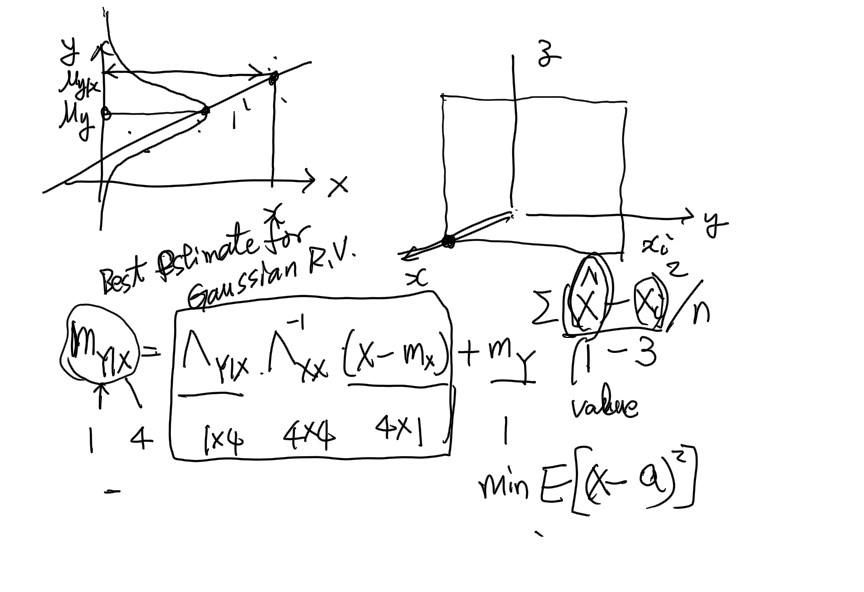 y
μy|x
μy
x
x
z
y
x
Best Estimate for
Gaussian R.V.
m_Y|X = Λ_Y|X · Λ_XX^-1 (X - m_x) + m_Y
1 4 1x4 4x4 4x1 1
Σ (X̂ - x_i)^2 / n
x_i
1 - 3
value
min E[(X - a)^2]